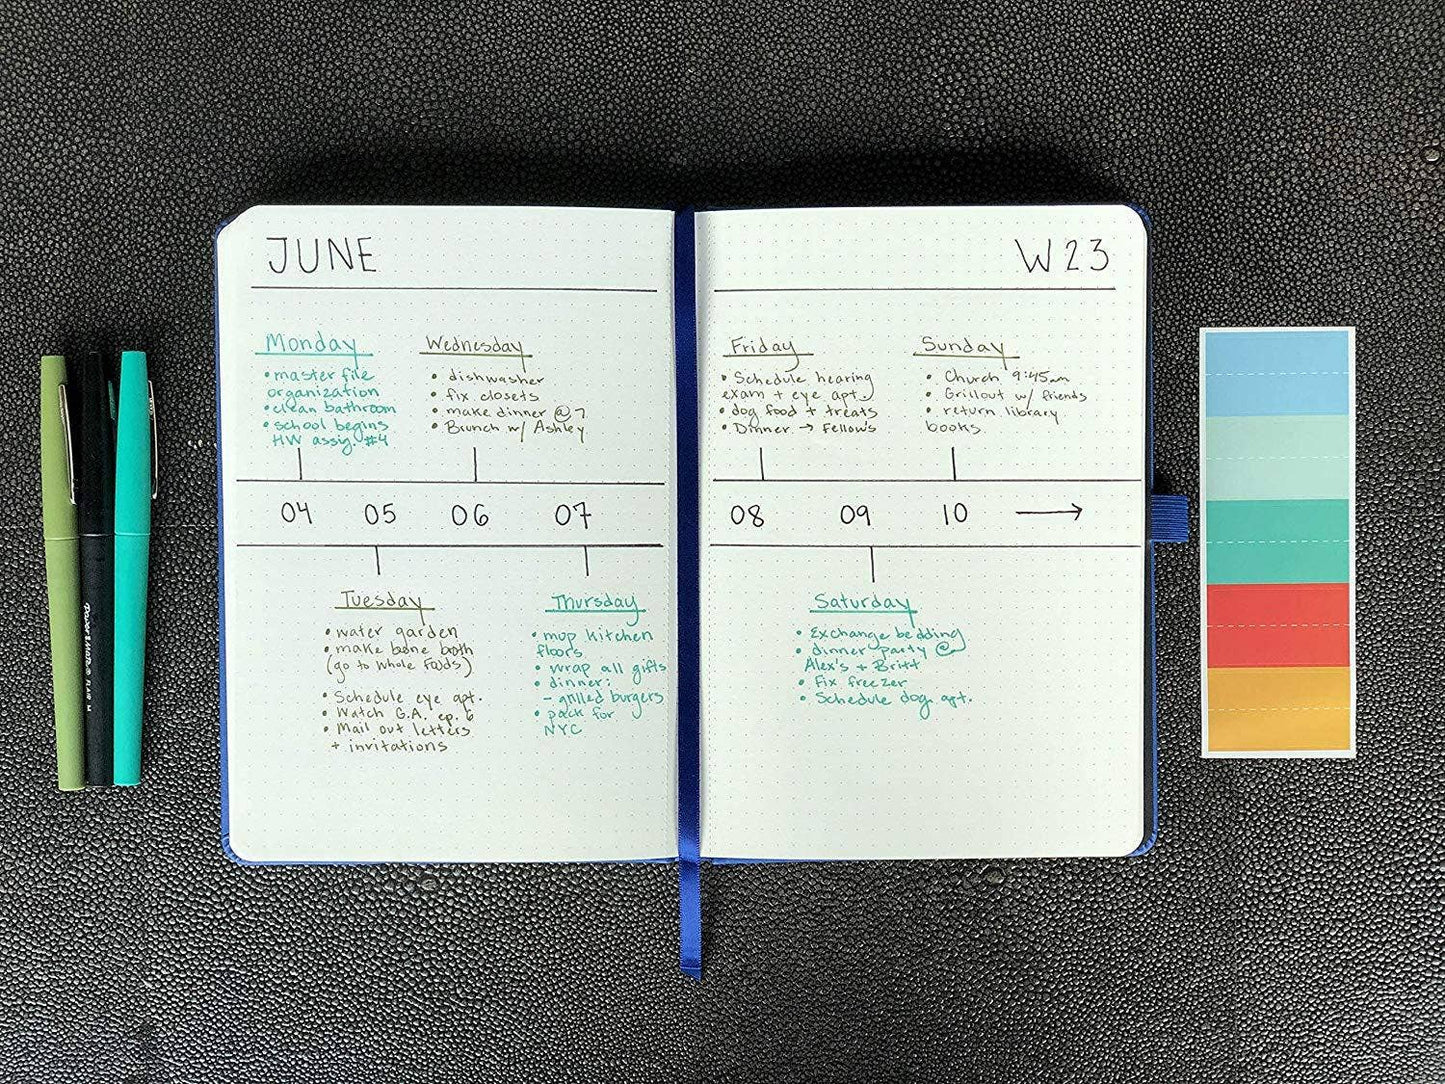 JUNE
W23
Monday
• master file
organization
• clean bathroom
• school begins
HW assig. #4
Wednesday
• dishwasher
• fix closets
• make dinner @ 7
• Brunch w/ Ashley
Friday
• Schedule hearing
exam + eye apt.
• dog food + treats
• Dinner → Fellow's
Sunday
• Church 9:45am
• Grillout w/ friends
• return library
books
04 05 06 07
08 09 10 →
Tuesday
• water garden
• make bone broth
(go to whole foods)
• Schedule eye apt.
• Watch G.A. ep. 6
• Mail out letters
+ invitations
Thursday
• mop kitchen
floors
• wrap all gifts
• dinner:
- grilled burgers
• pack for
NYC
Saturday
• Exchange bedding
• dinner party @
Alex's + Britt
• Fix freezer
• Schedule dog apt.